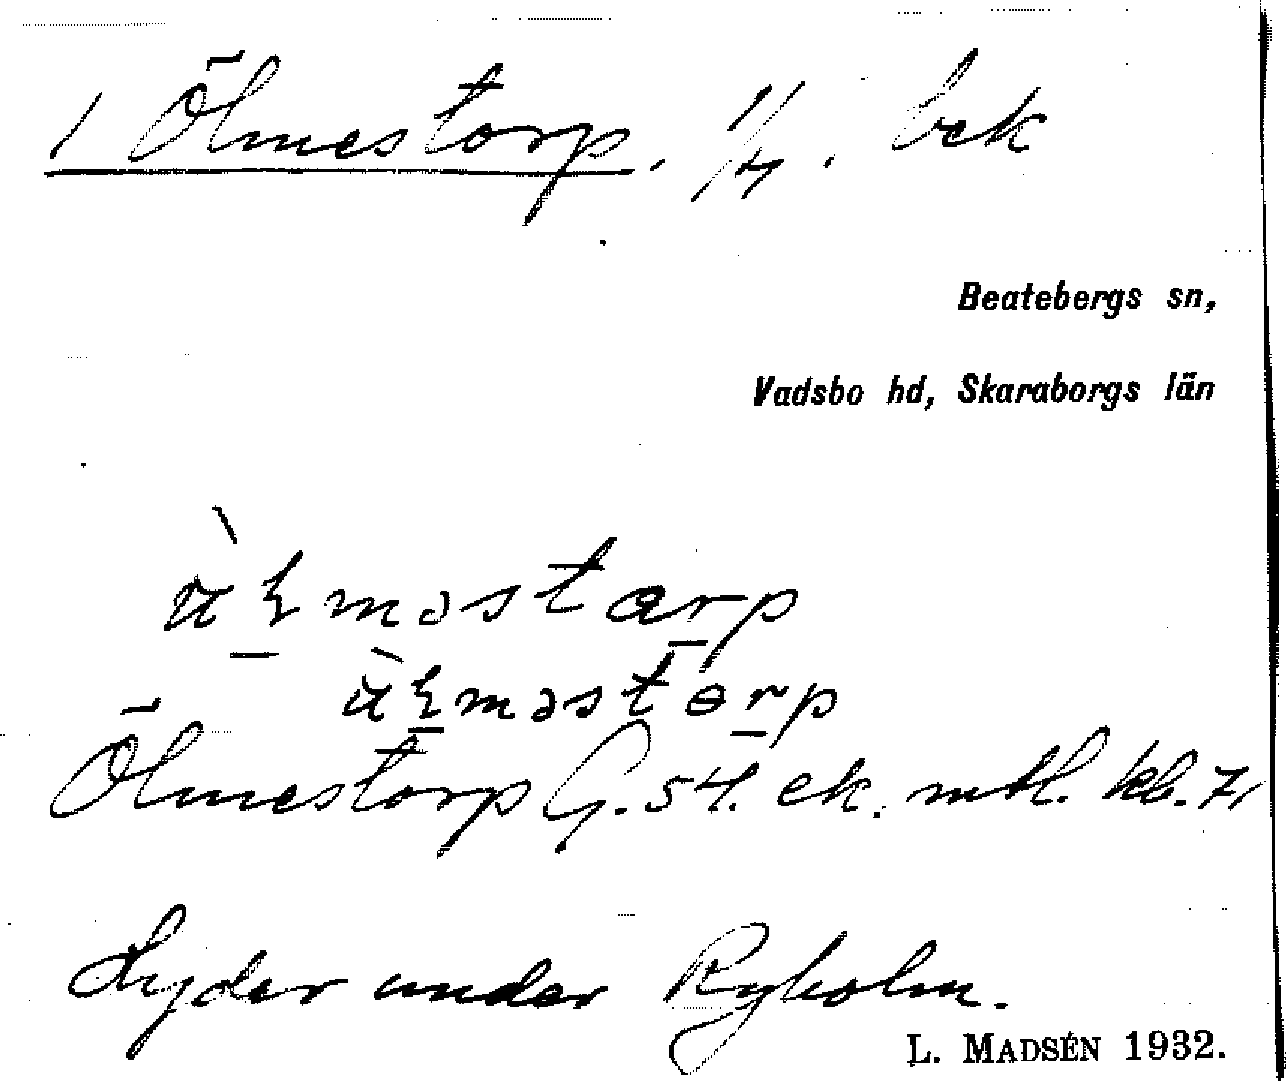 1 Ölmestorp. 1/4. bck
Beatebergs sn,
Vadsbo hd, Skaraborgs län
Ölmestorp G. 54. ek. mtl. kb. 7,
Lyder under Ryholm.
L. MADSÉN 1932.